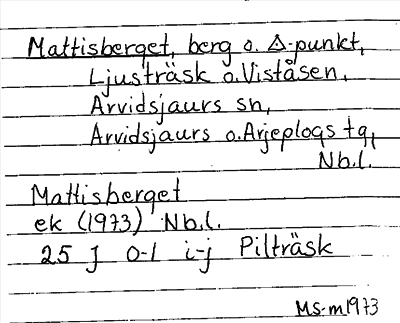 Mattisberget, berg o. Δ-punkt,
Ljusträsk o. Viståsen,
Arvidsjaurs sn,
Arvidsjaurs o. Arjeplogs tg,
Nb.l.
Mattisberget
ek (1973) Nb.l.
25 J 0-1 i-j Pilträsk
MS-m 1973